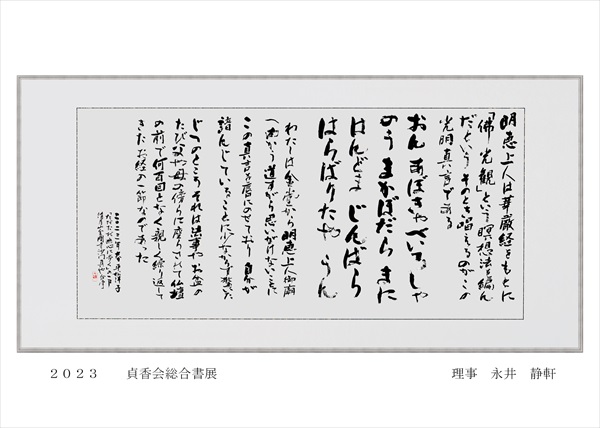 明恵上人は華厳経をもとに
「佛光観」という瞑想法を編ん
だという そのとき唱えるのがこの
光明真言である
おん あぼきゃ べいろしゃ
のう まかぼだら まに
はんどま じんばら
はらばりたや うん
わたしは金堂から明恵上人御廟
へ向かう道すがら思いがけないことに
この真言を唇にのせており 自分が
諳んじていることに少なからず驚いた
じつのところ それは法事やお盆の
たび父や母の傍らに座らされて仏壇
の前で何百回となく親しく繰り返して
きたお経の一節なのであった
2023 貞香会総合書展
理事 永井 静軒